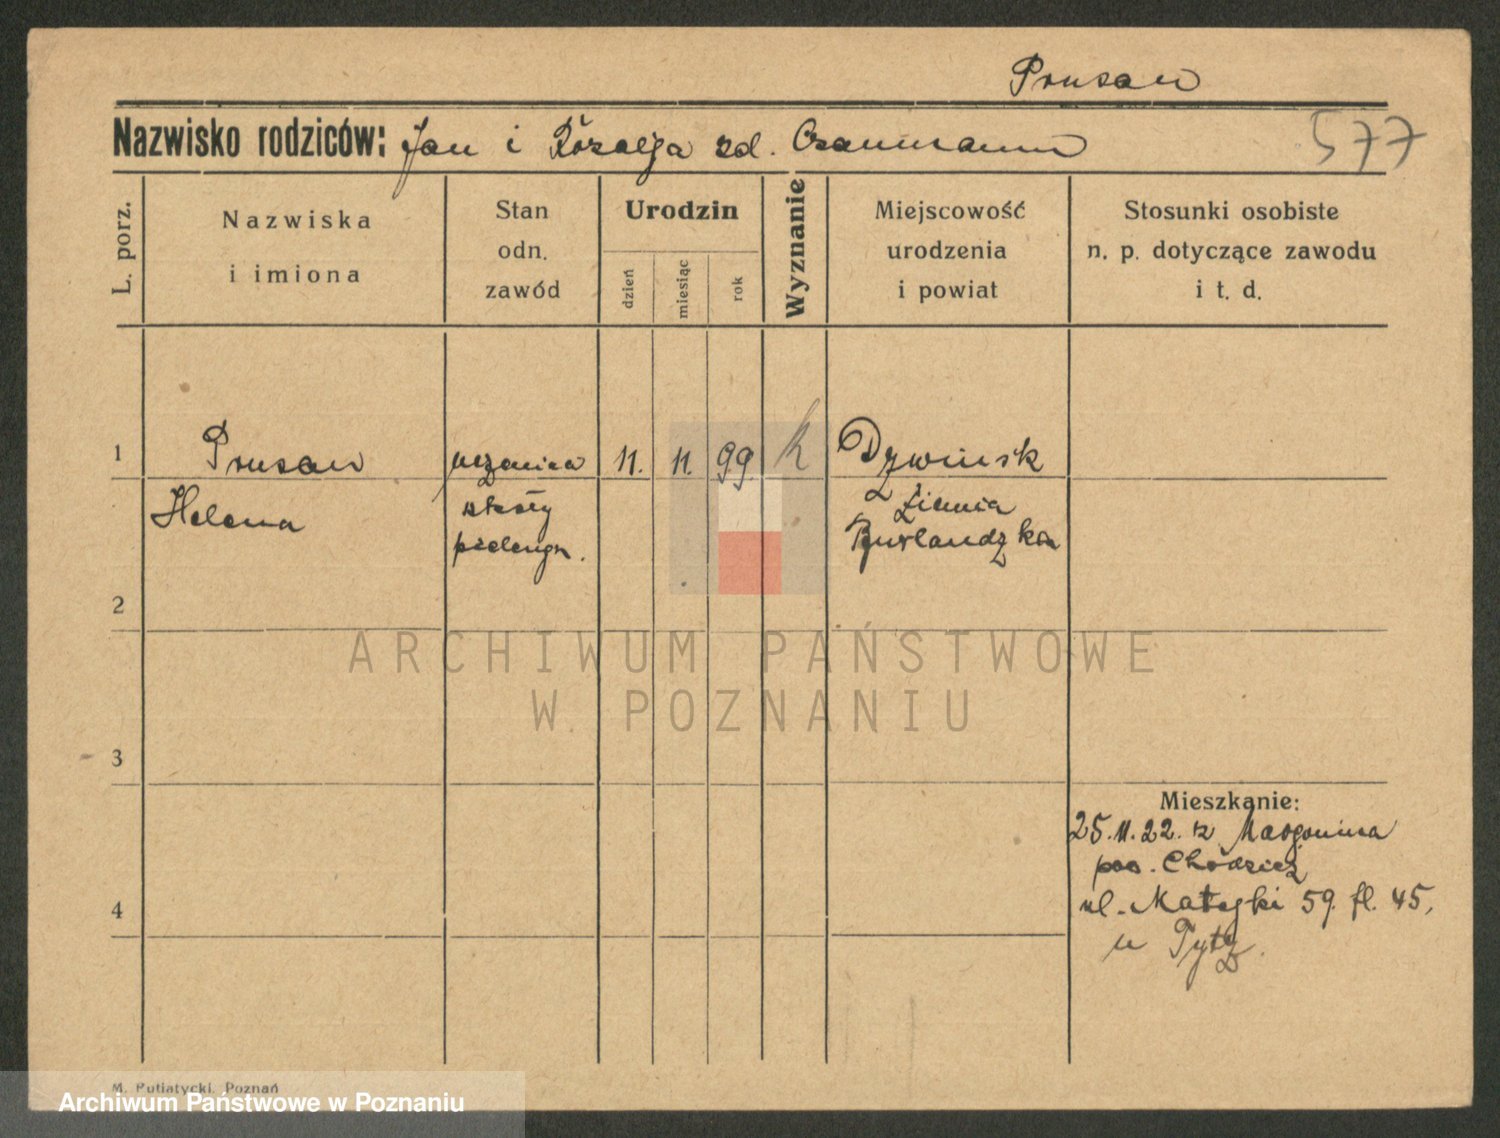 Prusan
Nazwisko rodziców: Jan i Rózalja zd.
577
L. porz.
Nazwiska
i imiona
Stan
odn.
zawód
Urodzin
dzień
miesiąc
rok
Wyznanie
Miejscowość
urodzenia
i powiat
Stosunki osobiste
n. p. dotyczące zawodu
i t. d.
1 Prusan uczenica 11. 11. 99. k Dzwinsk
Helena szkoły Ziemia
pielengn. Kurlandzka
2
3
4
Mieszkanie:
25.11.22. z Margonina
pow. Chodzież
ul. Matejki 59. fl. 45,
u Tytz.
ARCHIWUM PAŃSTWOWE
W POZNANIU
M. Putiatycki, Poznań
Archiwum Państwowe w Poznaniu